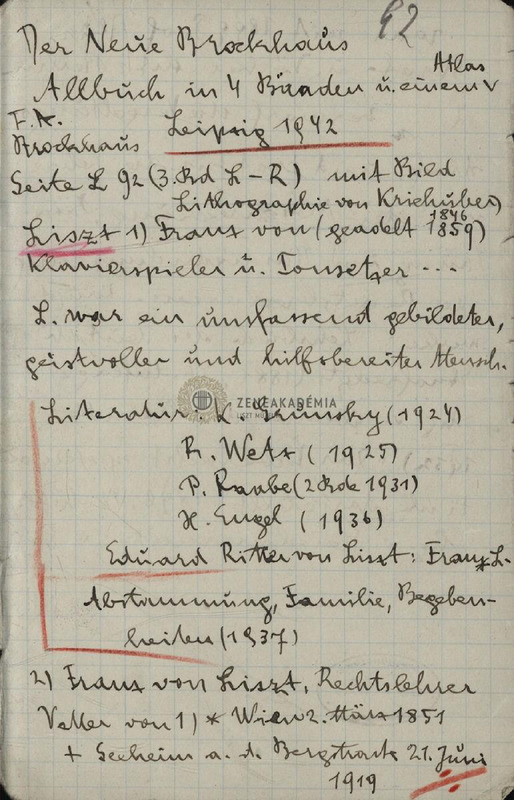 62
Der Neue Brockhaus
Allbuch in 4 Bänden u. einem Atlas
F. A.
Brockhaus Leipzig 1942
Seite L 92 (3. Bd L-R) mit Bild
Lithographie von Kriehuber
Liszt 1) Franz von (geadelt 1859) 1846
Klavierspieler u. Tonsetzer ...
L. war ein umfassend gebildeter,
geistvoller und hilfsbereiter Mensch.
ZENEAKADÉMIA
Literatur: K. Grunsky (1924)
R. Wetz (1925)
P. Raabe (2 Bde 1931)
H. Engel (1936)
Eduard Ritter von Liszt: Franz L.
Abstammung, Familie, Begeben-
heiten (1937)
2) Franz von Liszt, Rechtslehrer
Vetter von 1) * Wien 2. März 1851
+ Seeheim a. d. Bergstraße 21. Juni
1919